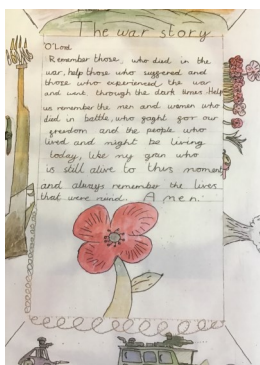 The war story
'O'Lord
Remember those, who died in the
war, help those who suffered and
those who experienced the war
and went through the dark times. Help
us remember the men and women who
died in battle, who foght for our
freedom and the people who
lived and might be living
today, like my gran who
is still alive to this moment
and always remember the lives
that were ruind. Amen.'